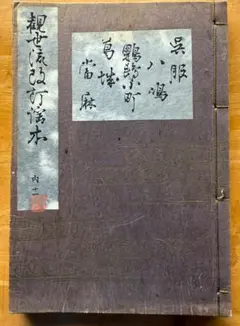 呉服
八嶋
鸚鵡小町
葛城
當麻
觀世流改訂謡本
内十一